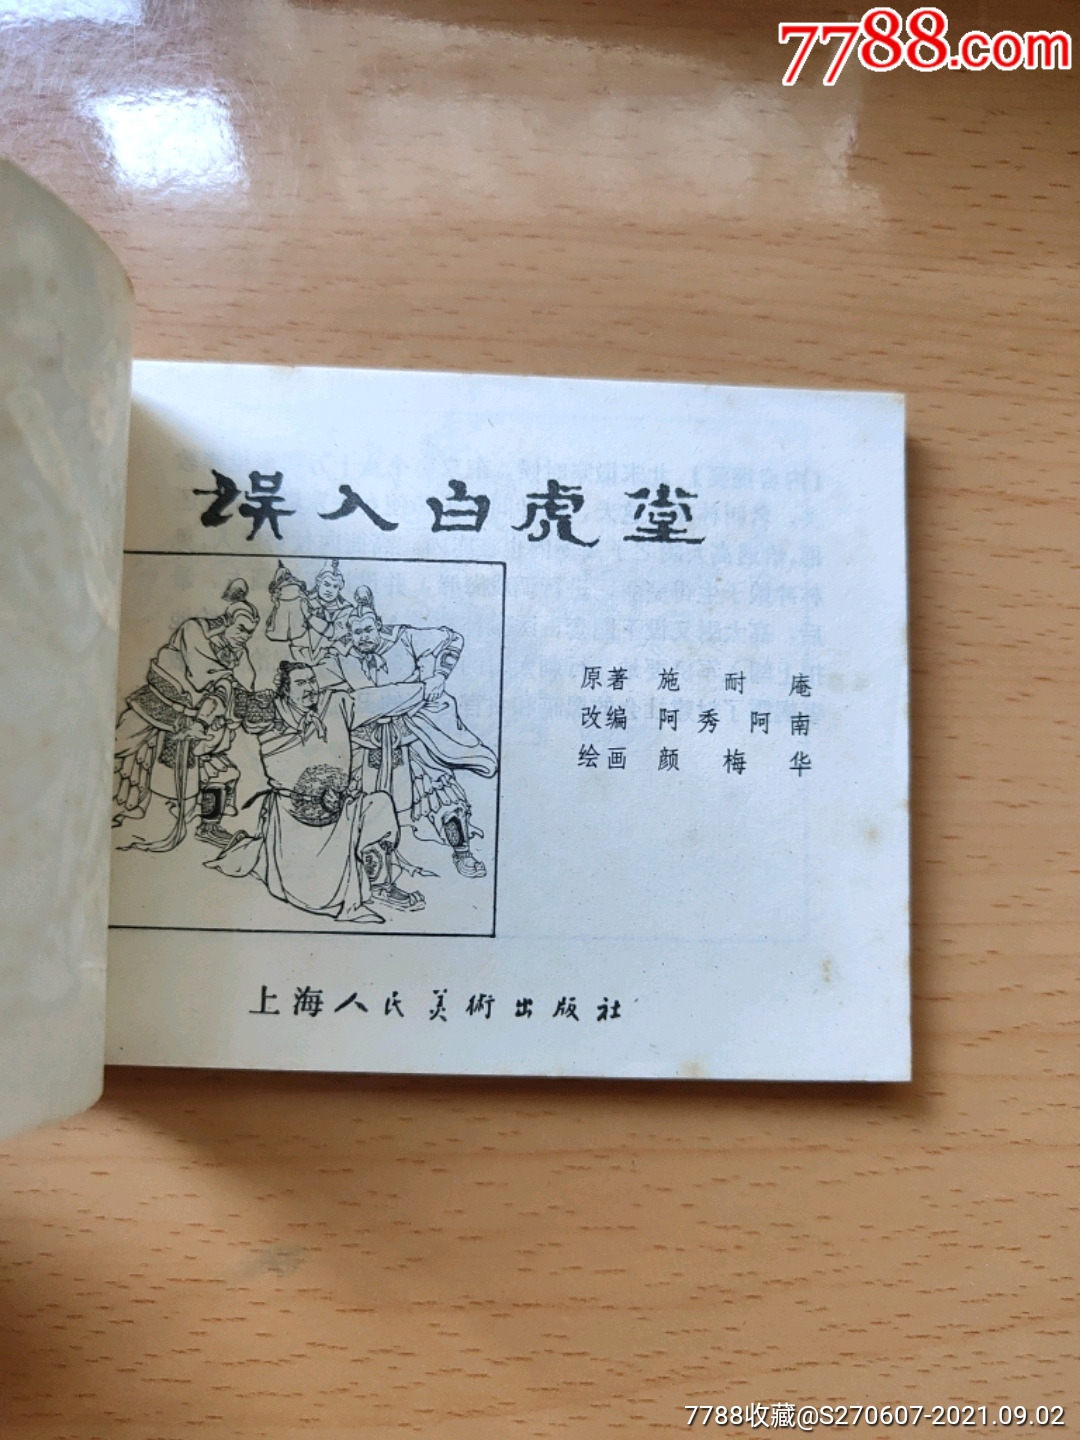 7788.com
误入白虎堂
原著 施耐庵
改编 阿秀 阿南
绘画 颜梅华
上海人民美術出版社
7788收藏@S270607-2021.09.02